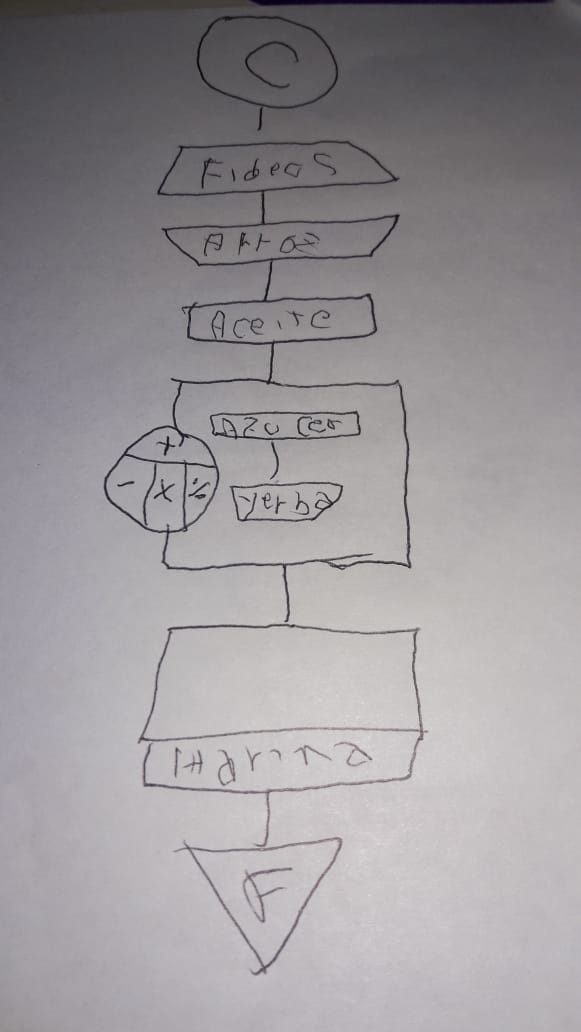 C
Fideos
Arroz
Aceite
Azucar
+
- x %
Yerba
Harina
F